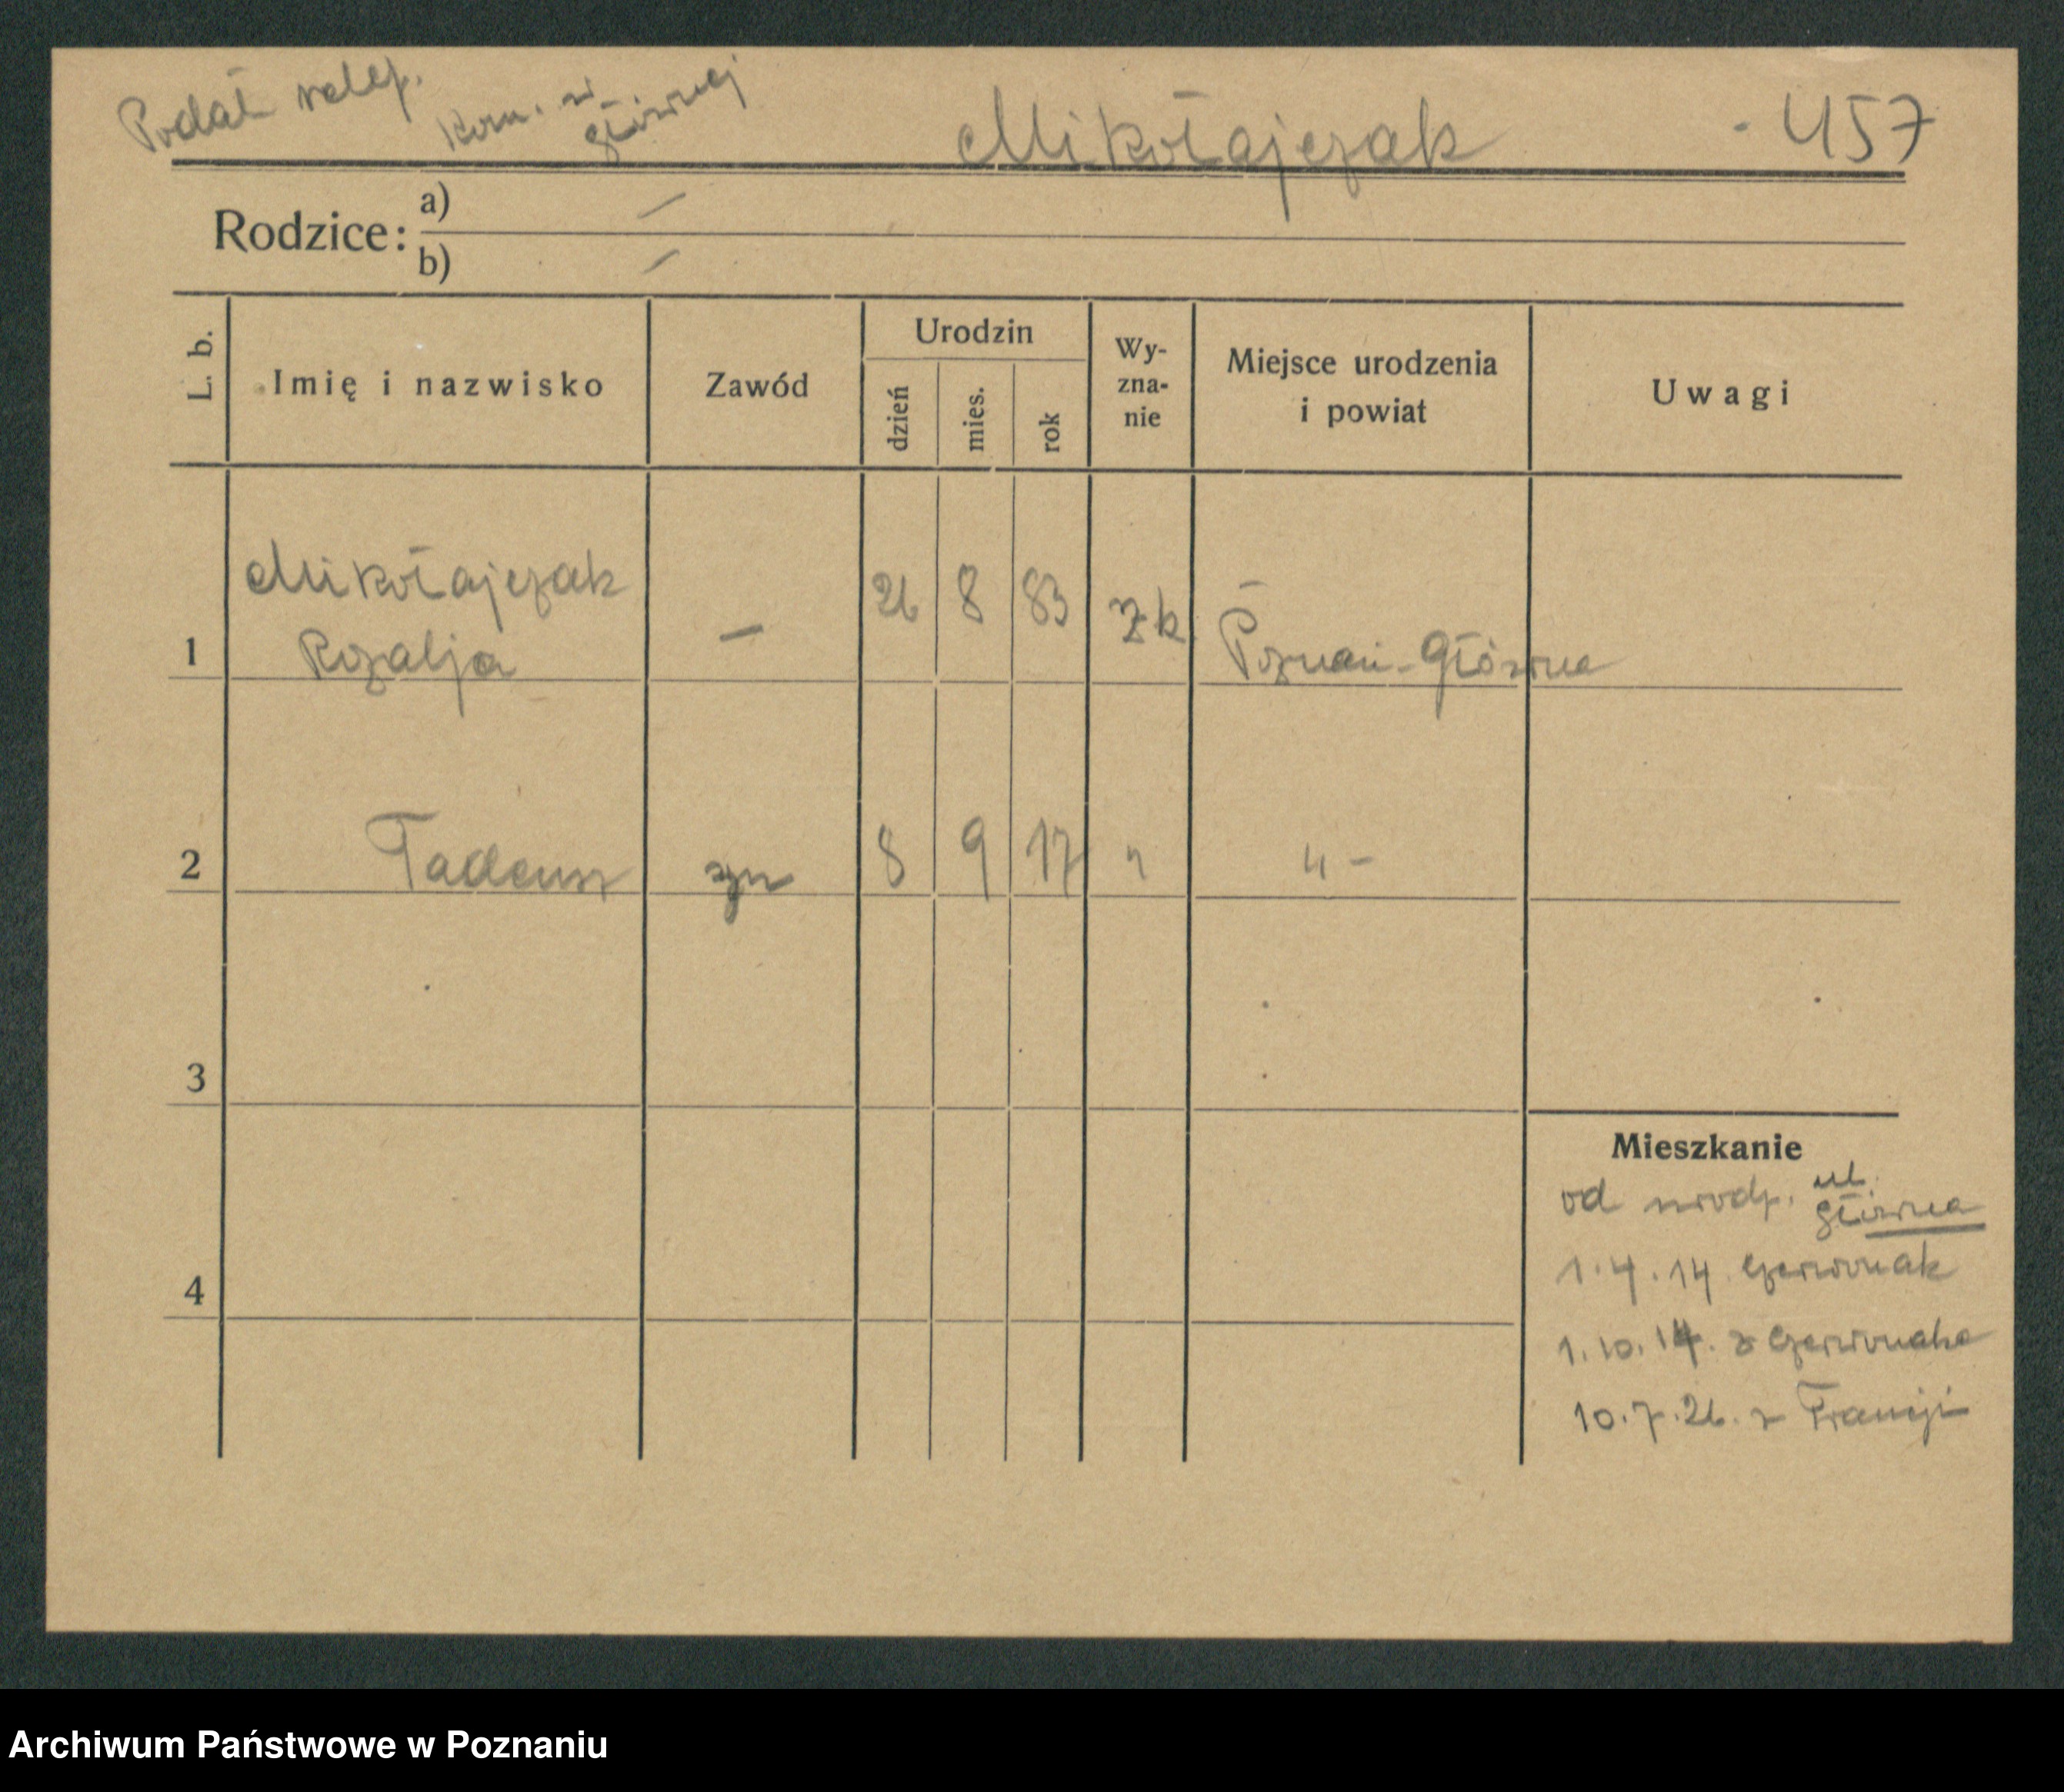 Podał
Kom. w Głównej
Mikołajczak
457
Rodzice:
a) –
b) –
L. b.
Imię i nazwisko
Zawód
Urodzin
dzień
mies.
rok
Wy-
zna-
nie
Miejsce urodzenia
i powiat
Uwagi
Mikołajczak
1 Rozalja – 26 8 83 rzk Poznań-Główna
2 Tadeusz syn 8 9 17 " " –
3
4
Mieszkanie
od urodz. ul. Główna
1.4.14. Czerwonak
1.10.14. z Czerwonaka
10.7.26. z Francji
Archiwum Państwowe w Poznaniu